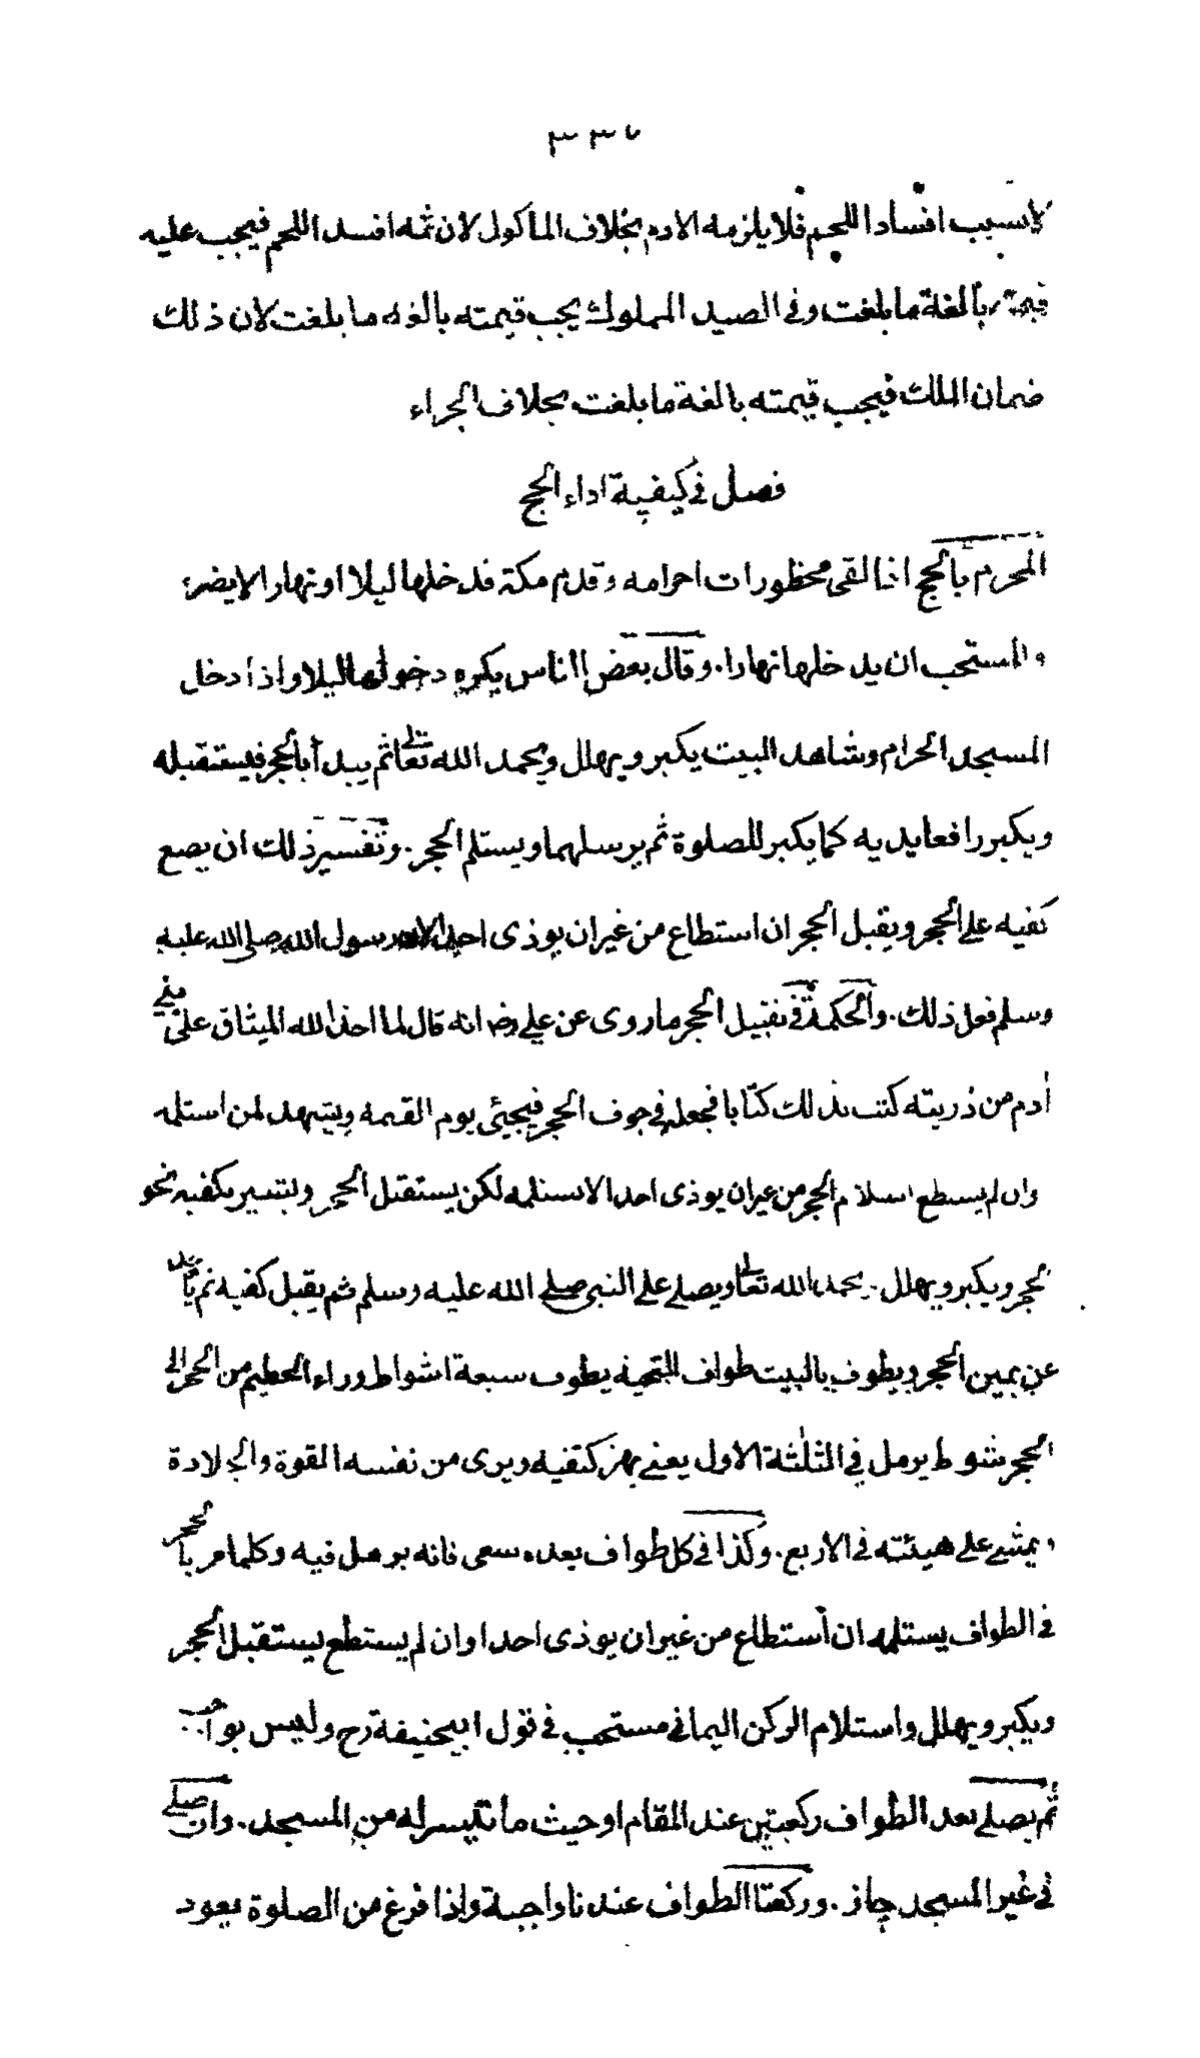 ٣٣٧
لا بسبب افساد اللحم فلا يلزمه الا دم بخلاف الماكول لان ثمه افسد اللحم فيجب عليه
قيمته بالغة ما بلغت وفى الصيد المملوك يجب قيمته بالغه ما بلغت لان ذلك
ضمان الملك فيجب قيمته بالغة ما بلغت بخلاف الجزاء
فصل فى كيفية اداء الحج
المحرم بالحج اذا لقى محظورات احرامه وقدم مكة فدخلها ليلا او نهارا لا يضره
والمستحب ان يدخلها نهارا. وقال بعض الناس يكره دخولها ليلا واذا دخل
المسجد الحرام وشاهد البيت يكبر ويهلل ويحمد الله تعالى ثم يبدأ بالحجر فيستقبله
ويكبر رافعا يديه كما يكبر للصلوة ثم يرسلهما ويستلم الحجر. وتفسير ذلك ان يضع
كفيه على الحجر ويقبل الحجر ان استطاع من غير ان يوذى احدا لان رسول الله صلى الله عليه
وسلم فعل ذلك. والحكمة فى تقبيل الحجر ما روى عن على رضه انه قال لما اخذ الله الميثاق على بنى
اٰدم من ذريته كتب بذلك كتابا فجعله فى جوف الحجر فيجيئ يوم القيمه ويشهد لمن استلمه
وان لم يستطع استلام الحجر من غير ان يوذى احدا لا يستلمه لكن يستقبل الحجر ويشير بكفيه نحو
الحجر ويكبر ويهلل ويحمد الله تعالى ويصلى على النبى صلى الله عليه وسلم ثم يقبل كفيه ثم
عن يمين الحجر ويطوف بالبيت طواف التحية يطوف سبعة اشواط وراء الحطيم من الحجر الى
الحجر شوط يرمل فى الثلثة الاول يعنى يهز كتفيه ويرى من نفسه القوة والجلادة
ويمشى على هيئته فى الاربع. وكذا فى كل طواف بعده سعى فانه يرمل فيه وكلما مر بالحجر
فى الطواف يستلمه ان استطاع من غير ان يوذى احدا وان لم يستطع يستقبل الحجر
ويكبر ويهلل واستلام الركن اليمانى مستحب فى قول ابيحنيفة رح وليس بواجب
ثم يصلى بعد الطواف ركعتين عند المقام او حيث ما تيسر له من المسجد. وان صلى
فى غير المسجد جاز. وركعتا الطواف عندنا واجبة واذا فرغ من الصلوة يعود